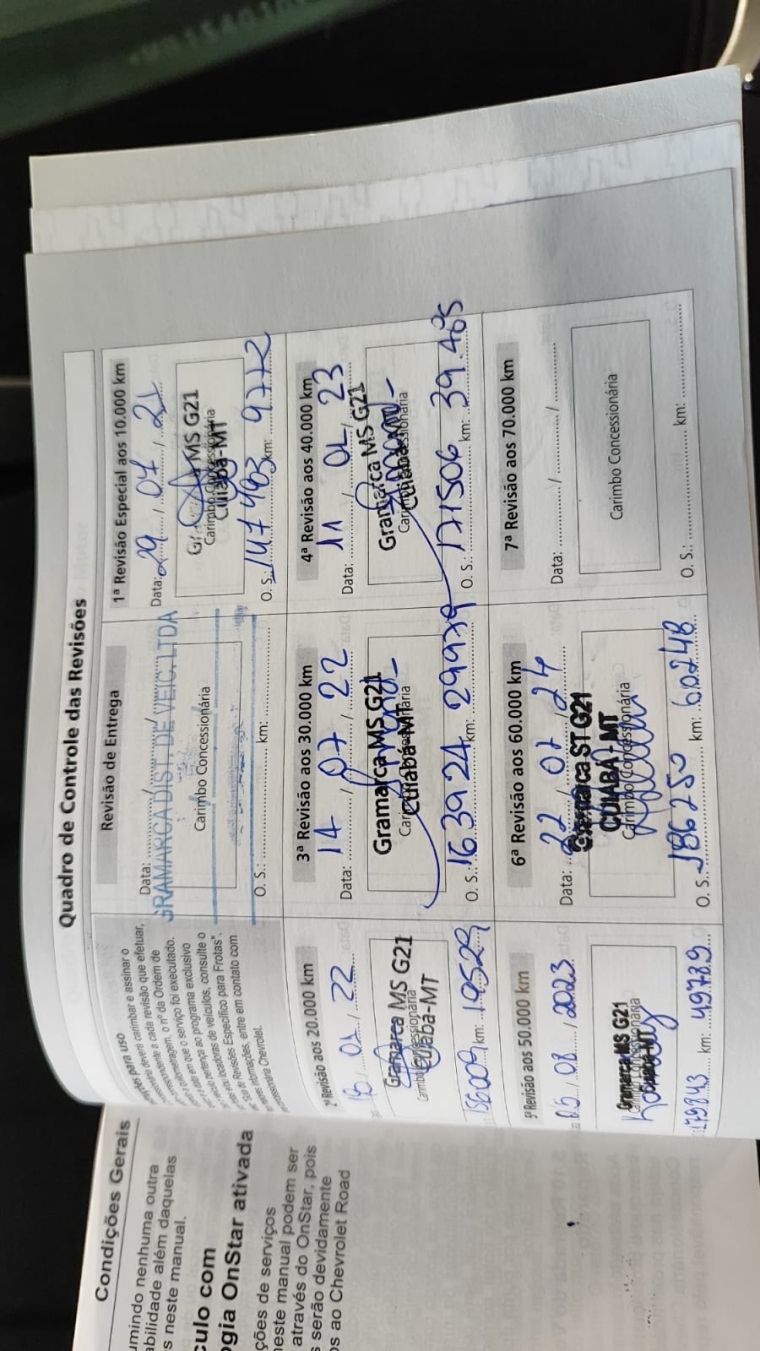 Condições Gerais
umindo nenhuma outra
abilidade além daquelas
s neste manual.
culo com
ogia OnStar ativada
ções de serviços
neste manual podem ser
através do OnStar, pois
s serão devidamente
os ao Chevrolet Road
Quadro de Controle das Revisões
para uso
deverá carimbar e assinar o
a cada revisão que efetuar,
o nº da Ordem de
em que o serviço foi executado.
pertença ao programa exclusivo
de veículos, consulte o
Revisões Específico para Frotas".
entre em contato com
Chevrolet.
Revisão de Entrega
Data:
GRAMARCA DIST. DE VEIC. LTDA
Carimbo Concessionária
O. S.: km:
1ª Revisão Especial aos 10.000 km
Data: 29 / 07 / 21
MS G21
Carimbo
Cuiabá-MT
O. S.: 147493 km: 9772
2ª Revisão aos 20.000 km
01 / 22
Gramarca MS G21
Cuiabá-MT
156009 km: 19529
3ª Revisão aos 30.000 km
Data: 14 / 07 / 22
Gramarca MS G21
Cuiabá-MT
O. S.: 163924 km: 29979
4ª Revisão aos 40.000 km
Data: 11 / 01 / 23
Gramarca MS G21
Cuiabá
O. S.: 171506 km: 39.465
5ª Revisão aos 50.000 km
05 / 08 / 2023
Gramarca MS G21
179843 km: 49789
6ª Revisão aos 60.000 km
Data: 22 / 07 / 24
Gramarca ST G21
CUIABÁ - MT
Carimbo Concessionária
O. S.: 186250 km: 60248
7ª Revisão aos 70.000 km
Data: / /
Carimbo Concessionária
O. S.: km: